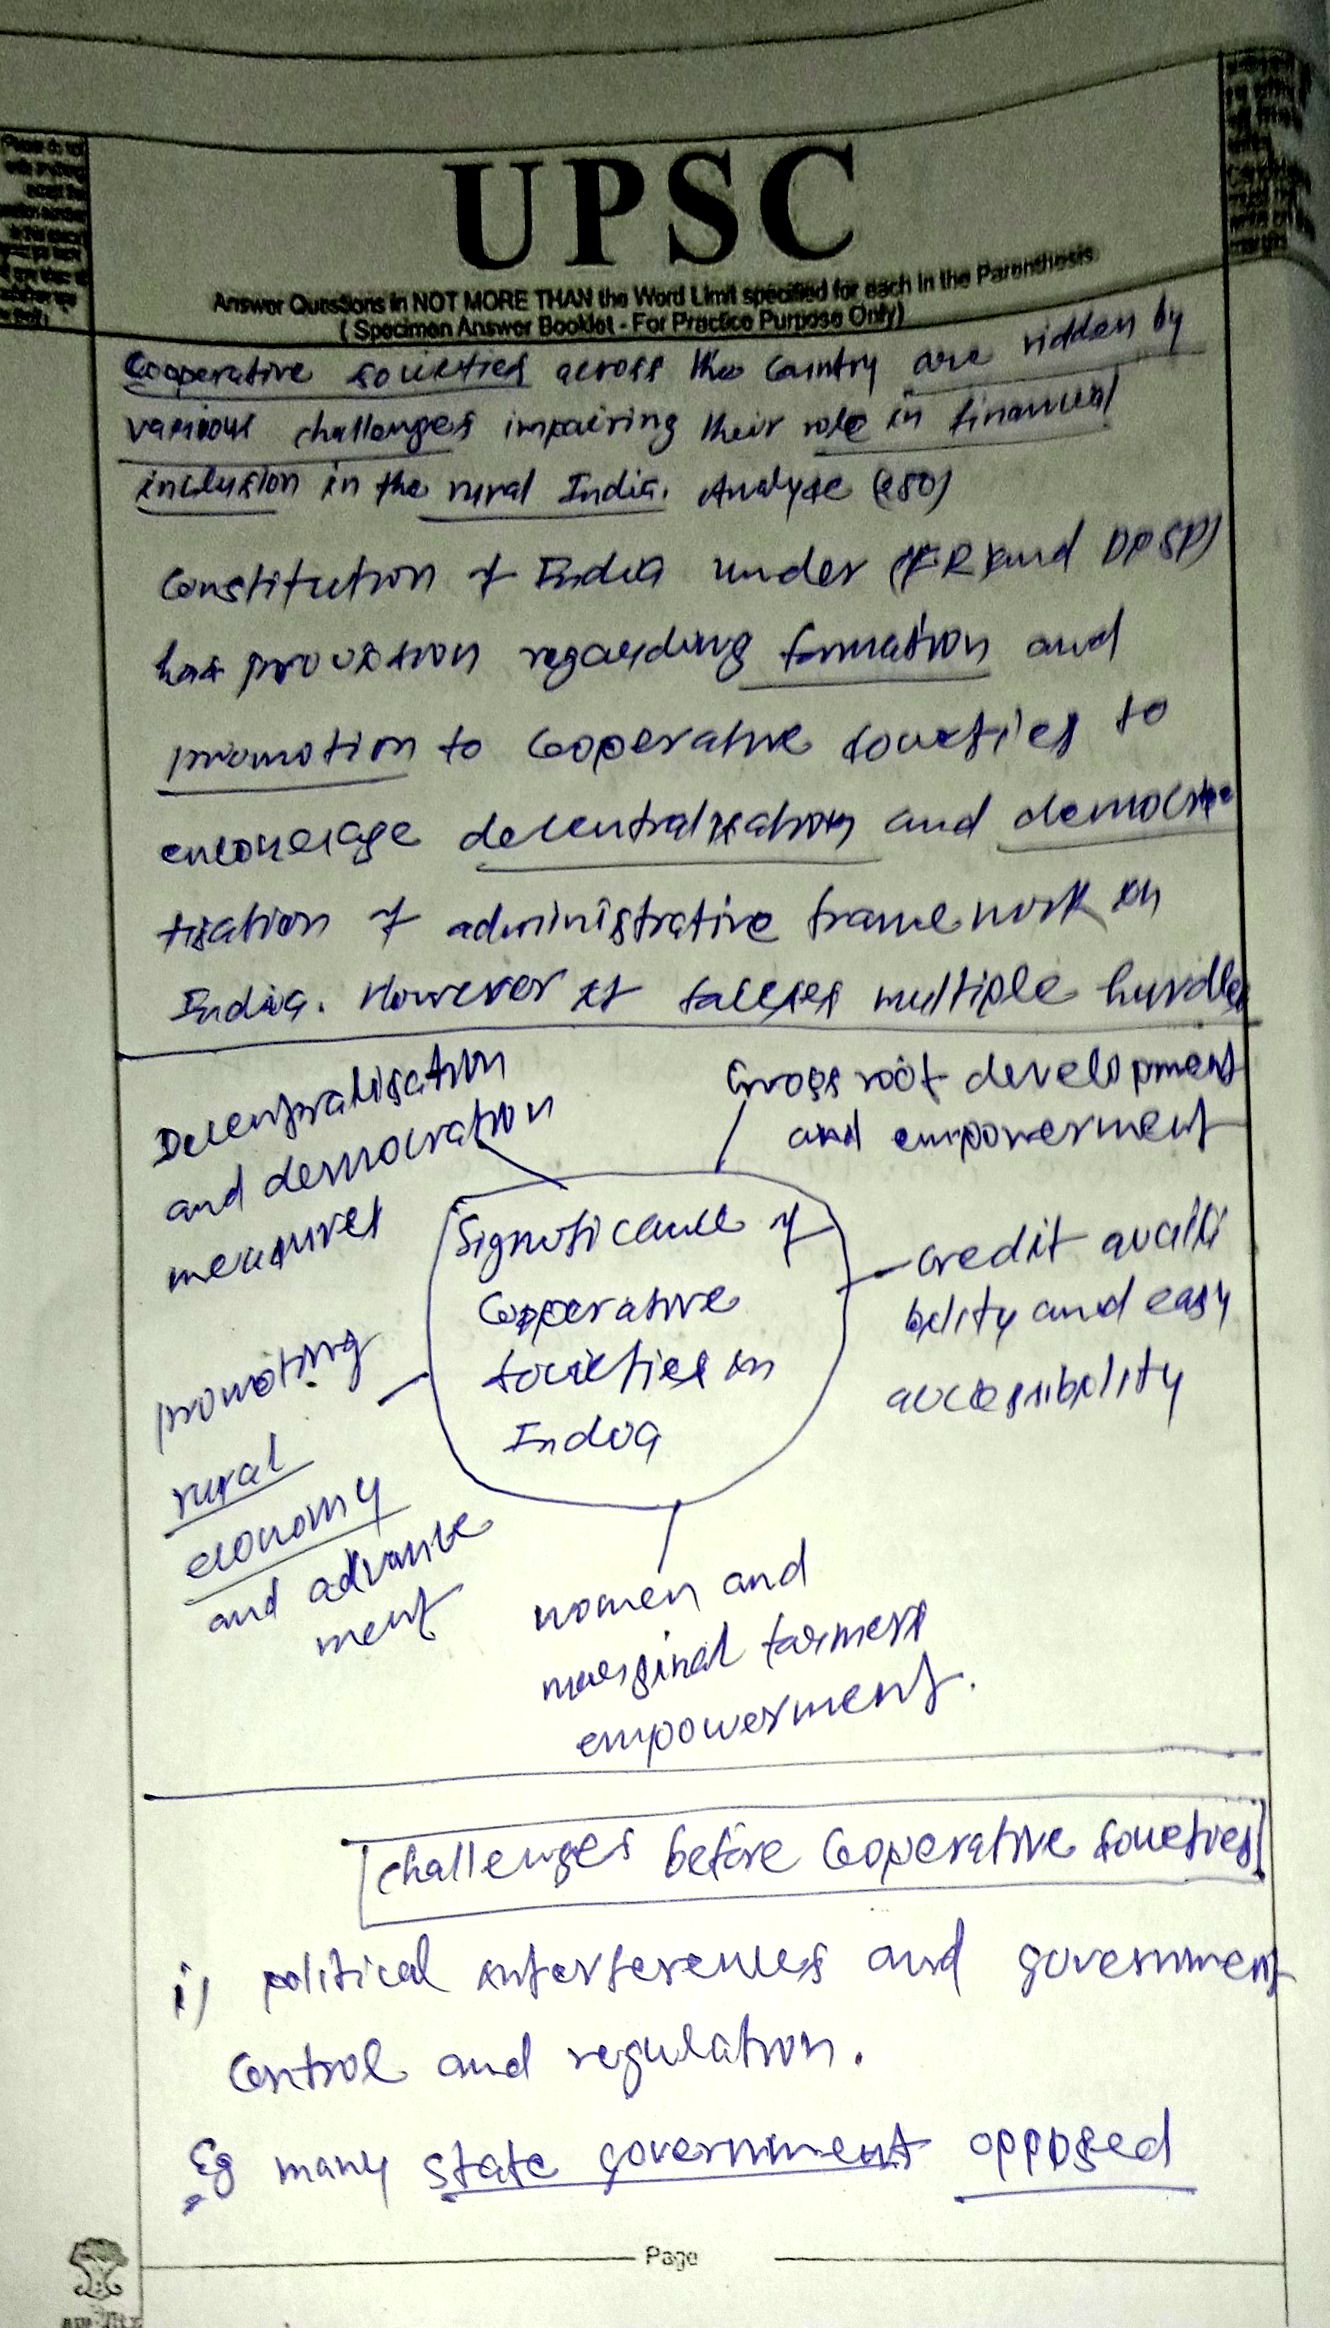 UPSC
Answer Questions in NOT MORE THAN the Word Limit specified for each in the Parenthesis.
( Specimen Answer Booklet - For Practice Purpose Only)
Cooperative societies across the Country are ridden by
various challenges impairing their role in financial
inclusion in the rural India. Analyse (250)
Constitution of India under (FR and DPSP)
has provision regarding formation and
promotion to Cooperative societies to
encourage decentralisation and democra
tisation of administrative framework in
India. However it faces multiple hurdles
Decentralisation
and democration
measures
Gross root development
and empowerment
Significance of
Cooperative
societies in
India
credit availi
bility and easy
accessibility
promoting
rural
economy
and advance
ment
women and
marginal farmers
empowerment.
Challenges before Cooperative societies
i) political interferences and government
Control and regulation.
Eg many state government opposed
Page